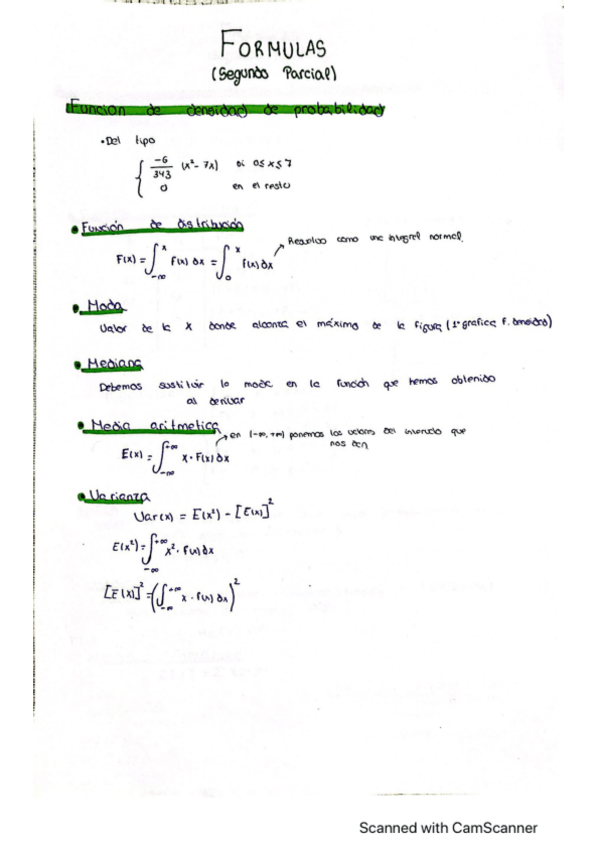 FORMULAS
(Segundo Parcial)
Funcion de densidad de probabilidad
• Del tipo
{ -6/343 (x² - 7x) si 0≤x≤7
0 en el resto
• Función de distribución
F(x) = ∫_{-∞}^{x} f(x) dx = ∫_{0}^{x} f(x) dx ↗ Resuelvo como una integral normal.
• Moda
Valor de la X donde alcanza el máximo de la figura (1ª grafica f. densidad)
• Mediana
Debemos sustituir la moda en la función que hemos obtenido
al derivar
• Media aritmetica
→ en (-∞, +∞) ponemos los valores del intervalo que
nos den
E(x) = ∫_{-∞}^{+∞} x · F(x) dx
• Varianza
Var(x) = E(x²) - [E(x)]²
E(x²) = ∫_{-∞}^{+∞} x² · f(x) dx
[E(x)]² = (∫_{-∞}^{+∞} x · f(x) dx)²
Scanned with CamScanner